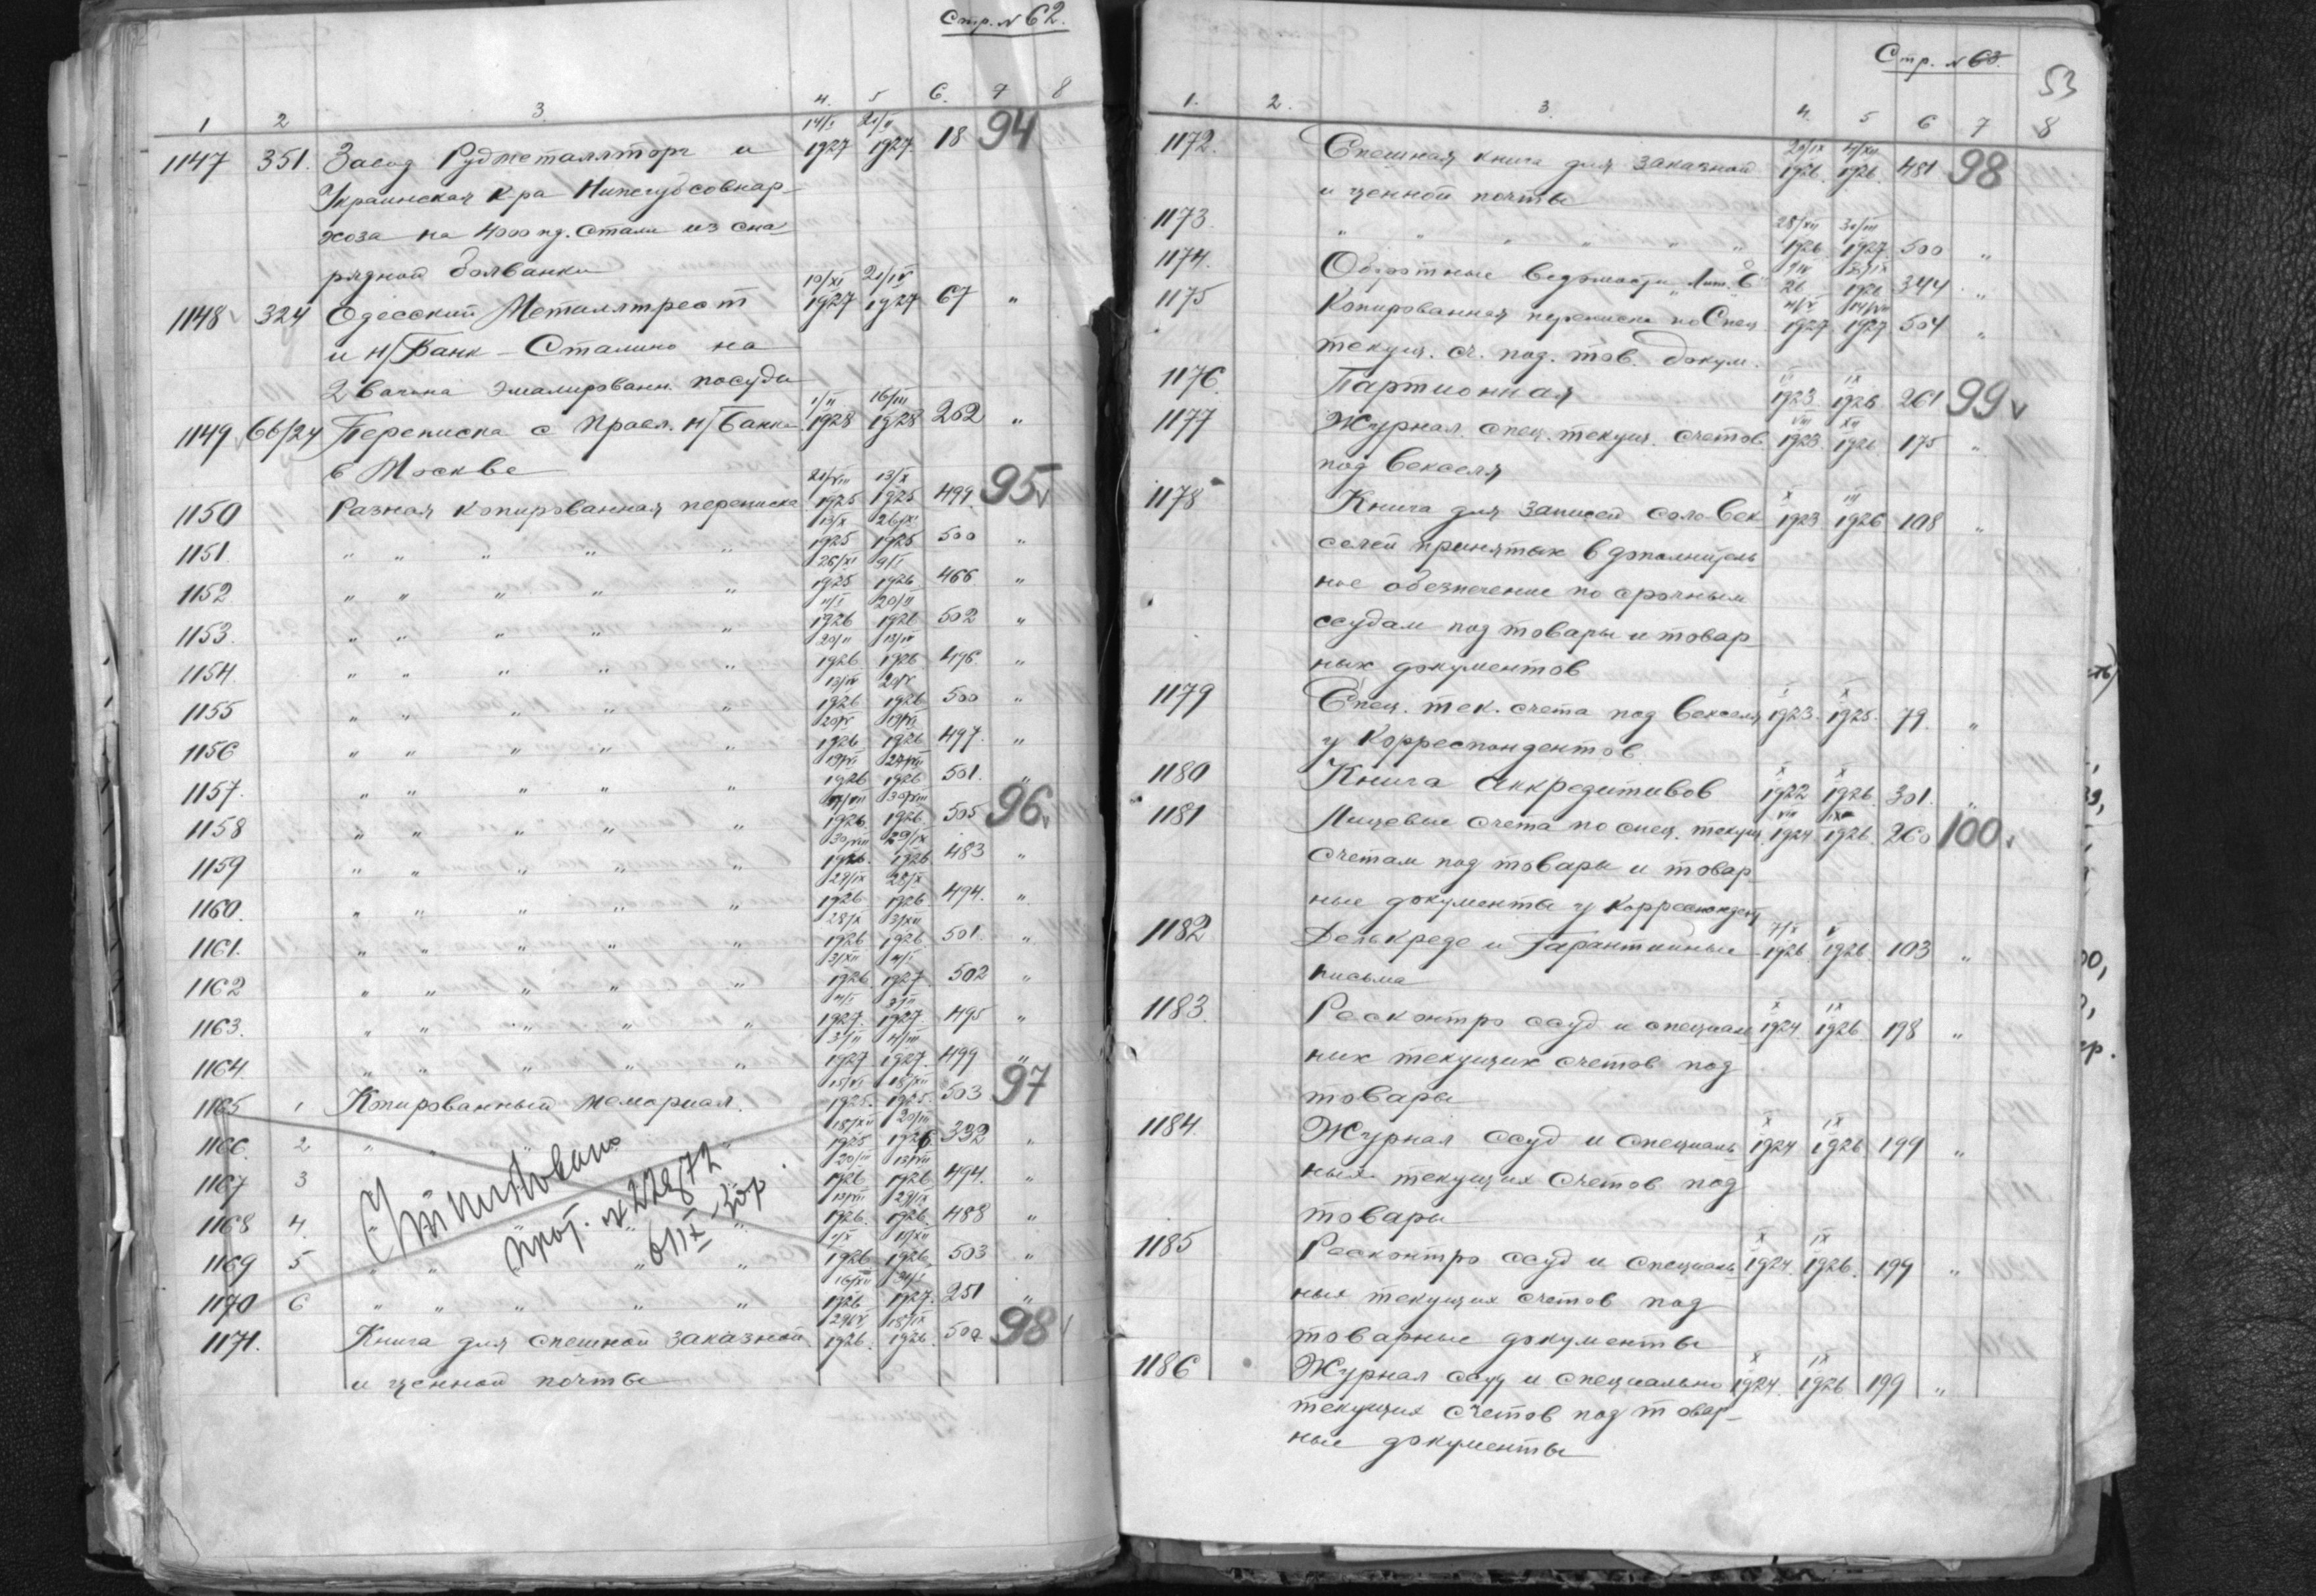 Стр. N 62.
1 2 3 4. 5 6. 7 8
14/I 21/II
1147 351. Завод Рудметаллторг и 1927 1927 18 94
Украинская К-ра Нижегубсовнар-
хоза на 4000 пд. стали из сна-
рядной болванки
10/XI 21/IV
1148 324 Одесский Металлтрест 1927 1927 67 "
и Н/Банк - Сталино на
2 вагона эмалированн. посуды
1/II 16/III
1149 66/24 Переписка с Правл. Н/Банка 1928 1928 202 "
в Москве
21/VIII 13/X
1150 Разная копированная переписка 1925 1925 499. 95 v
13/X 26/XI
1151. " " " " " 1925 1925 500 "
26/XI 9/I
1152 " " " " " 1925 1926 466 "
11/I 20/II
1153. " " " " " 1926 1926 502 "
20/II 13/IV
1154. " " " " " 1926 1926 496. "
13/IV 20/V
1155 " " " " " 1926 1926 500 "
20/V 19/VI
1156 " " " " " 1926 1926 497. "
19/VI 27/VII
1157. " " " " " 1926 1926 501. "
30/VIII
1158 " " " " " 1926. 1926. 505 96 v
30/VIII 29/IX
1159 " " " " " 1926. 1926 483 "
29/IX 28/X
1160. " " " " " 1926 1926 494. "
28/X 3/XII
1161. " " " " " 1926 1926 501. "
3/XII 4/I
1162 " " " " " 1926. 1927. 502 "
4/I 3/II
1163. " " " " " 1927. 1927 495 "
3/II 4/III
1164. " " " " " 1927 1927. 499 "
15/VI 18/XII
1165 1 Копированный мемориал. 1925. 1925. 503 97
18/XII 20/III
1166. 2 " " " " 1925 1926 332 "
20/III 13/VII
1167 3 " " " 1926 1926 494. "
13/VII 29/IX
1168 4. " " " 1926. 1926. 488 "
1169 5 " " " " " 1926 1926. 503 "
16/XII
1170 6 " " " " " 1926 1927. 251 "
18/IX
1171. Книга для спешной заказной 1926. 1926. 502 98
и ценной почты
прот. N 22872
Стр. N 63.
53
1. 2. 3. 4. 5 6 7 8
20/IX 4/XII
1172. Спешная книга для заказной 1926. 1926. 481 98
и ценной почты
28/XII 30/III
1173. " " " " " " 1926 1927. 500 "
1174. Оборотные ведомости Лит. Е 26 1926 344. "
1175 Копированная переписка по Спец. 1927 1927. 504 "
текущ. сч. под. тов. докум.
IX IX
1176. Партионная 1923 1926. 261 99 v
VIII XII
1177 Журнал. спец. текущ. счетов. 1923. 1926. 175 "
под векселя
X
1178 Книга для записей соло век 1923 1926 108 "
селей принятых в дополнитель
ное обезпечение по срочным
ссудам под товары и товар
ных документов
X
1179 Спец. тек. счета под векселя 1923. 1925. 79. "
у корреспондентов.
X X
1180 Книга Аккредитивов 1922 1926 301. "
VIII IX
1181 Лицевые счета по спец. текущ. 1924 1926. 260 100 v
счетам под товары и товар-
ные документы у корреспондент
7/X V
1182 Делькреде и Гарантийные 1926. 1926 103 "
письма
X IX
1183. Ресконтро ссуд и специаль 1924. 1926 198 "
ных текущих счетов под
товары
X IX
1184. Журнал ссуд и специаль 1924 1926 199 "
ных текущих счетов под
товары
X IX
1185 Ресконтро ссуд и специаль 1924. 1926. 199 "
ных текущих счетов под
товарные документы
X IX
1186 Журнал ссуд и специально 1924. 1926 199 "
текущих счетов под товар-
ные документы